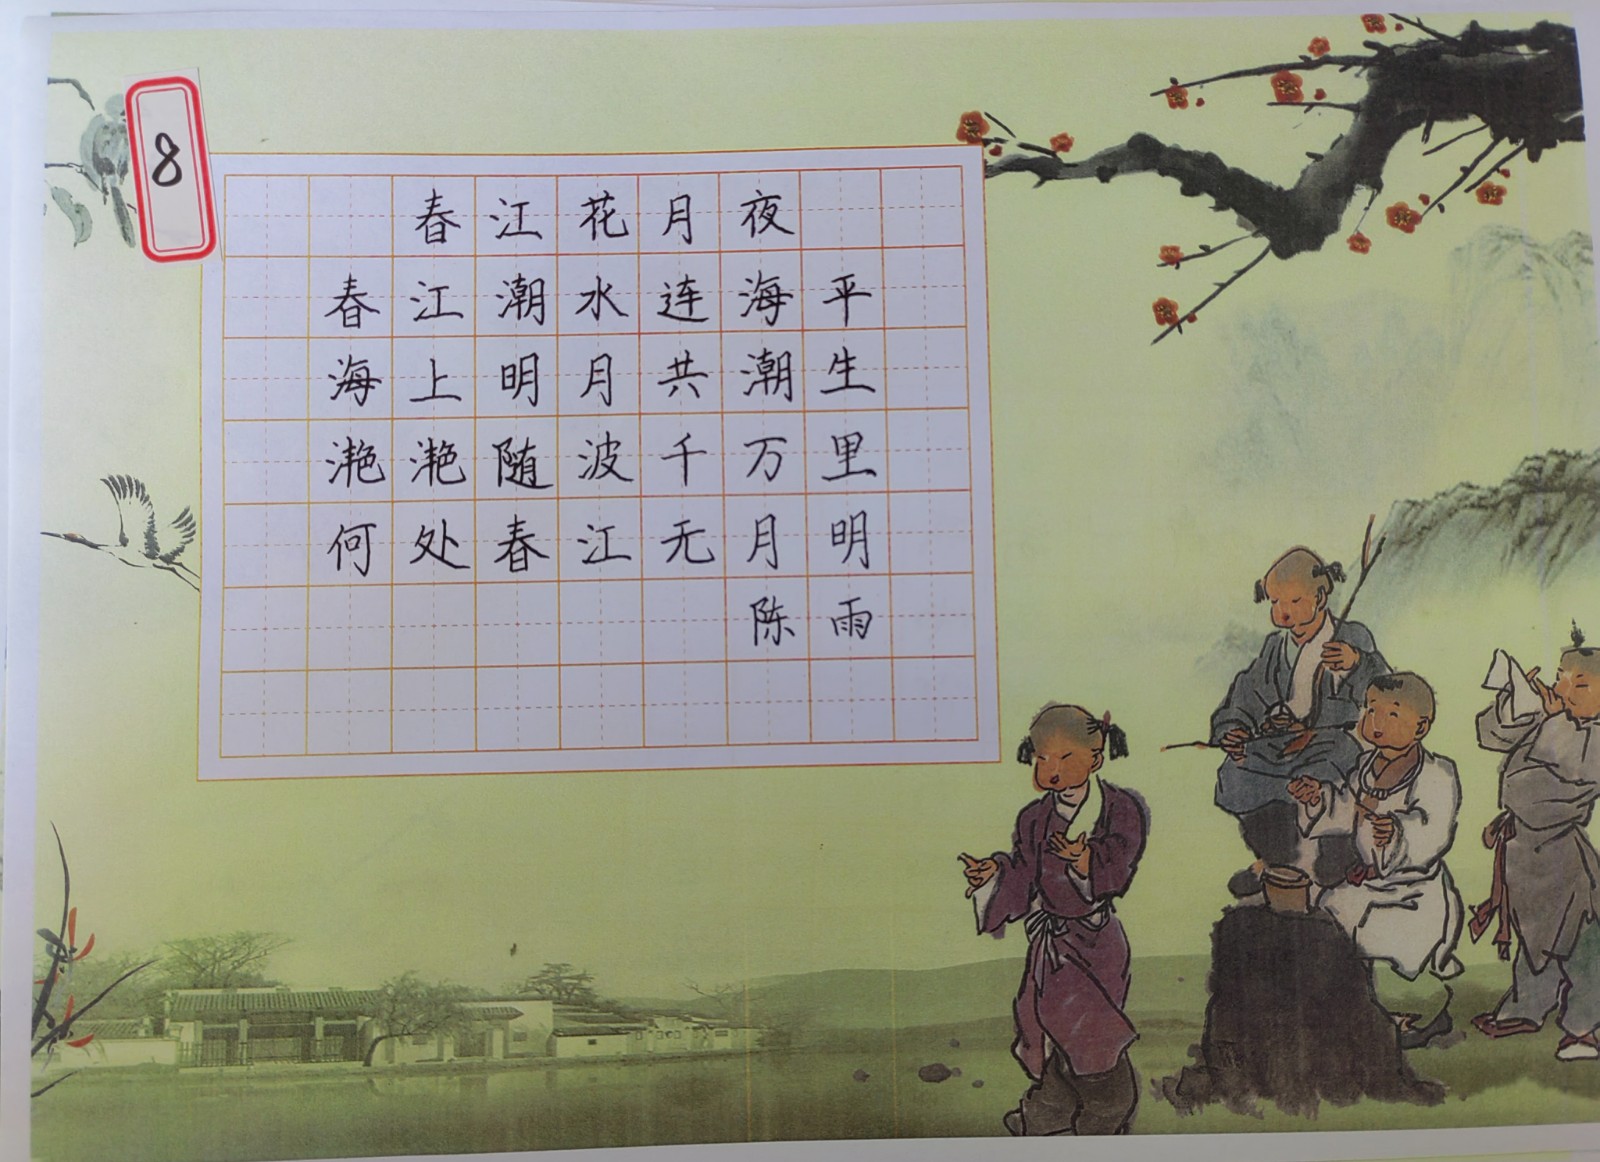 8
春江花月夜
春江潮水连海平
海上明月共潮生
滟滟随波千万里
何处春江无月明
陈雨